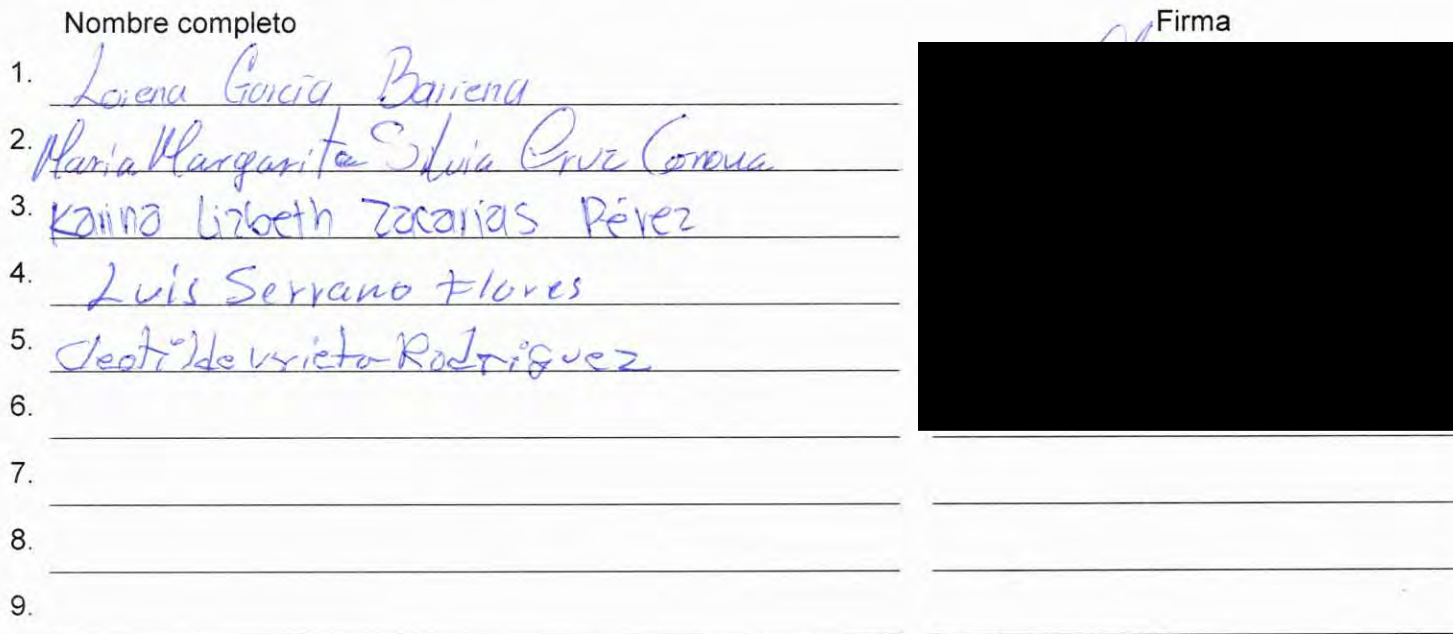 Nombre completo Firma
1. Lorena García Barrena
2. Maria Margarita Silvia Cruz
3. Karina Lizbeth Zacarias Pérez
4. Luis Serrano Flores
5. Cleotilde Urieta Rodriguez
6.
7.
8.
9.